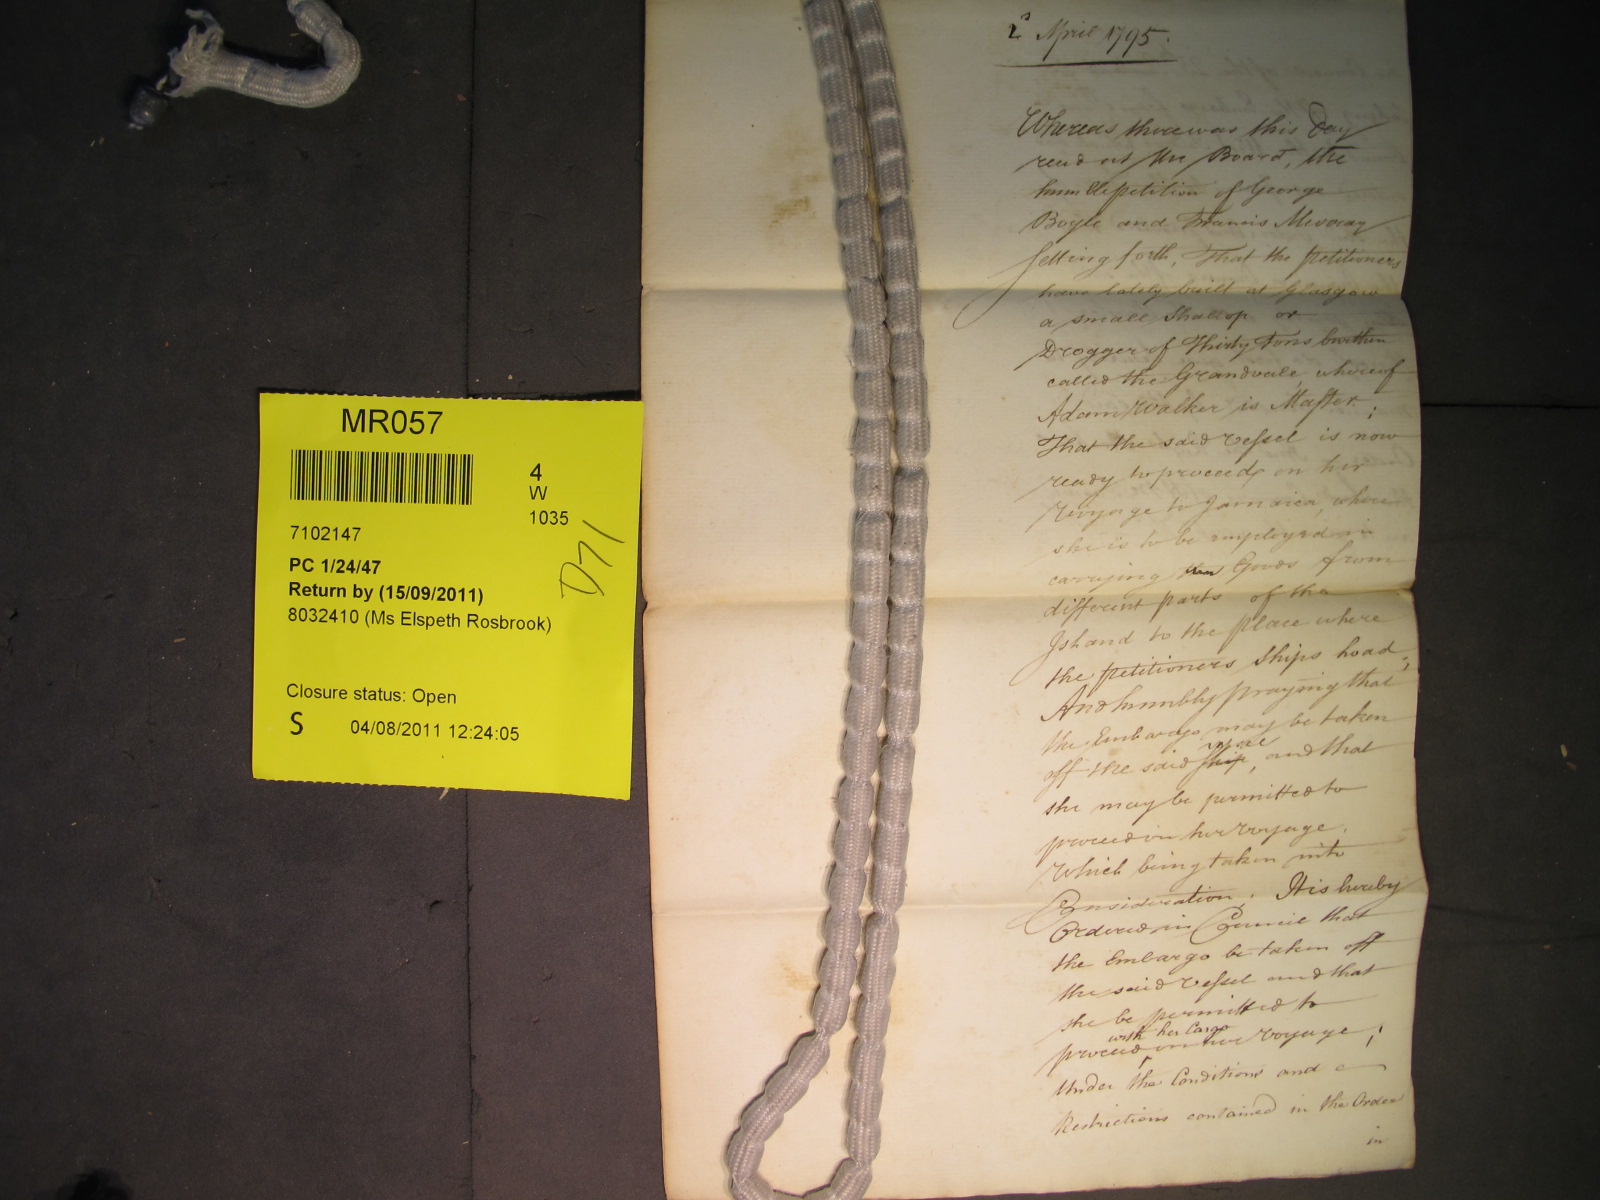 MR057
4
W
1035
7102147
PC 1/24/47
Return by (15/09/2011)
8032410 (Ms Elspeth Rosbrook)
D71
Closure status: Open
S 04/08/2011 12:24:05
April 1795.
Whereas there was this Day
read at the Board, the
humble petition of George
Boyle and Francis
Setting forth, That the petitioners
have lately built at Glasgow
a small Shallop or
Drogger of Thirty Tons burthen
called the Grandvale, whereof
Adam Walker is Master;
That the said Vessel is now
ready to proceed on her
Voyage to Jamaica, where
she is to be employed in
carrying Goods from
different parts of the
Island to the place where
the petitioners Ships load;
And humbly praying that
the Embargo may be taken
off the said ship, and that
she may be permitted to
proceed on her Voyage.
Which being taken into
Consideration, It is hereby
Ordered in Council that
the Embargo be taken off
the said Vessel and that
she be permitted to
with her Cargo
proceed on her Voyage;
Under the Conditions and
Restrictions contained in the Order
in